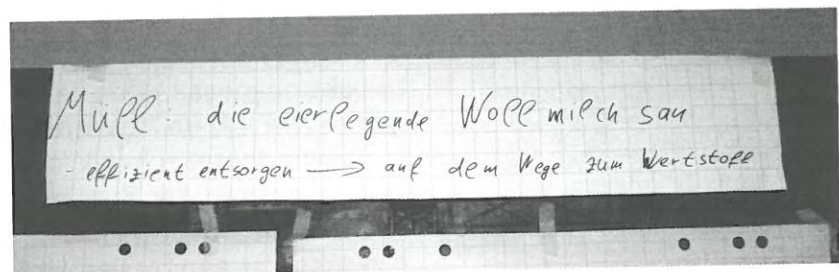 Müll: die eierlegende Wollmilchsau
- effizient entsorgen → auf dem Wege zum Wertstoff